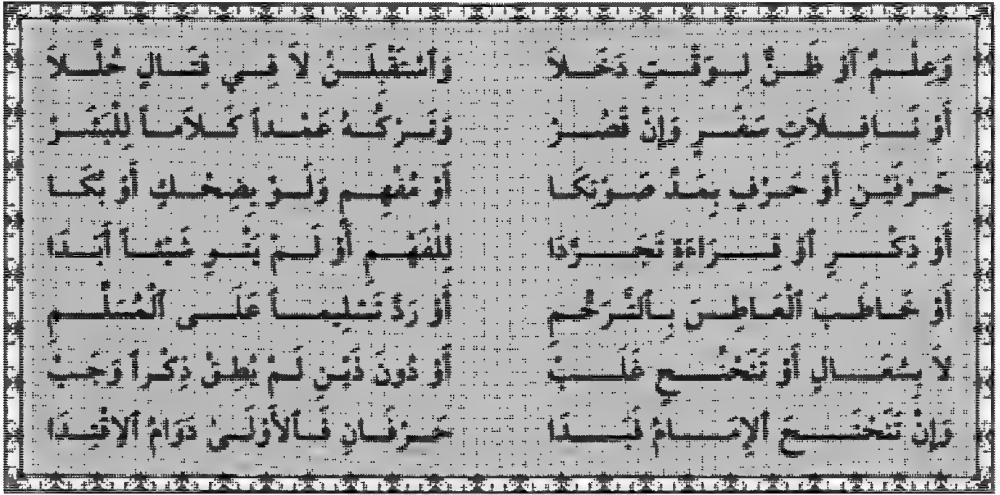 وَعِلْمٌ أَوْ ظَنٌّ لِوَقْتٍ دَخَلَا وَاسْتَقْبِلَنْ لَا فِي قِتَالٍ حُلِّلَا
أَوْ نَافِلَاتِ سَفَرٍ وَإِنْ قَصُرْ وَتَرْكُهُ عَمْداً كَلَاماً لِلْبَشَرْ
حَرْفَيْنِ أَوْ حَرْفٍ بِمَدٍّ صَوْتِكَا أَوْ مُفْهِمٍ وَلَوْ بِضِحْكٍ أَوْ بُكَا
أَوْ ذِكْرٍ أَوْ قِرَاءَةٍ تَجَرَّدَا لِلْفَهْمِ أَوْ لَمْ يَنْوِ شَيْئاً أَبَدَا
أَوْ خَاطَبَ الْعَاطِسَ بِالتَّرَحُّمِ أَوْ رَدَّ تَسْلِيماً عَلَى الْمُسَلِّمِ
لَا بِسُعَالٍ أَوْ تَنَحْنُحٍ غَلَبْ أَوْ دُونَ ذَيْنِ لَمْ يُطِقْ ذِكْراً وَجَبْ
وَإِنْ تَنَحْنَحَ الْإِمَامُ فَبَدَا حَرْفَانِ فَالْأَوْلَى دَوَامُ الِاقْتِدَا